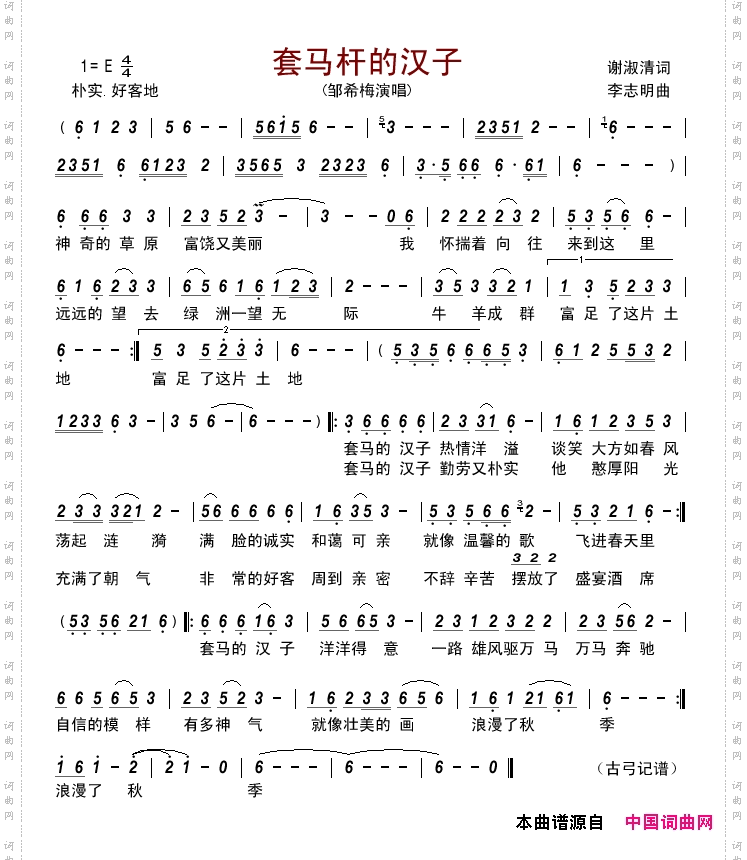 套马杆的汉子
1=E 4/4
谢淑清词
朴实.好客地
(邹希梅演唱)
李志明曲
( 6 1 2 3 | 5 6 - - | 5 6 1 5 6 - - | 5 3 - - - | 2 3 5 1 2 - - | 1 6 - - - |
2 3 5 1 6 6 1 2 3 2 | 3 5 6 5 3 2 3 2 3 6 | 3 · 5 6 6 6 · 6 1 | 6 - - - )
6 6 6 3 3 | 2 3 5 2 3 - | 3 - - 0 6 | 2 2 2 2 3 2 | 5 3 5 6 6 - |
神 奇的 草 原 富饶又美丽 我 怀揣着 向 往 来到这 里
6 1 6 2 3 2 | 6 5 6 1 6 1 2 3 | 2 - - - | 3 5 3 3 2 1 | 1 3 5 2 3 3 |
1
远远的 望 去 绿 洲一望 无 际 牛 羊成 群 富 足 了这片 土
6 - - - :| 5 3 5 2 3 3 | 6 - - - | ( 5 3 5 6 6 6 5 3 | 6 1 2 5 5 3 2 |
2
地 富 足 了这片 土 地
1 2 3 3 6 3 - | 3 5 6 6 - | 6 - - - ) |: 3 6 6 6 6 | 2 3 3 1 6 - | 1 6 1 2 3 5 3 |
套马的 汉子 热情洋 溢 谈笑 大方如春 风
套马的 汉子 勤劳又朴实 他 憨厚阳 光
2 3 3 3 2 1 2 - | 5 6 6 6 6 6 | 1 6 3 5 3 | 5 3 5 6 6 3 2 - | 5 3 2 1 6 - :|
荡起 涟 漪 满 脸的诚实 和蔼 可 亲 就像 温馨的 歌 飞进春天里
3 2 2
充满了朝 气 非 常的好客 周到 亲 密 不辞 辛苦 摆放了 盛宴酒 席
( 5 3 5 6 2 1 6 ) |: 6 6 6 1 6 3 | 5 6 5 3 - | 2 3 1 2 3 2 2 | 2 3 5 6 2 - |
套马的 汉 子 洋洋得 意 一路 雄风驱万 马 万马 奔 驰
6 6 5 6 5 3 | 2 3 5 2 3 - | 1 6 2 3 3 6 5 6 | 1 6 1 2 1 6 1 | 6 - - - :|
自信的模 样 有多神 气 就像壮美的 画 浪漫了秋 季
1 6 1 - 2 | 2 1 - 0 | 6 - - - | 6 - - - | 6 - - 0 ‖
(古弓记谱)
浪漫了 秋 季
本曲谱源自 中国词曲网